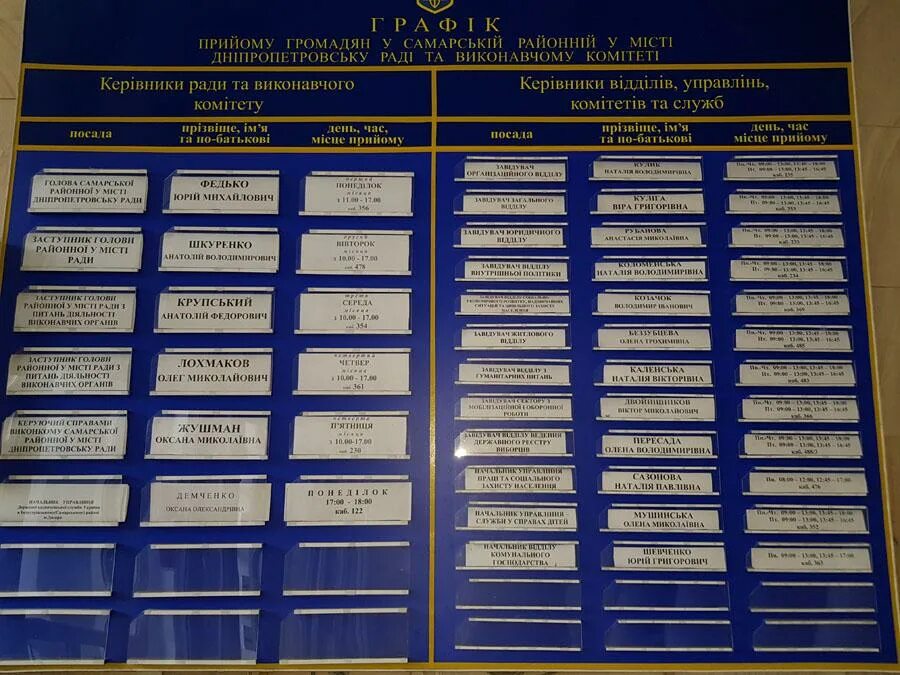 ГРАФІК
ПРИЙОМУ ГРОМАДЯН У САМАРСЬКІЙ РАЙОННІЙ У МІСТІ
ДНІПРОПЕТРОВСЬКУ РАДІ ТА ВИКОНАВЧОМУ КОМІТЕТІ
Керівники ради та виконавчого
комітету
посада
прізвище, ім'я
та по-батькові
день, час,
місце прийому
ГОЛОВА САМАРСЬКОЇ
РАЙОННОЇ У МІСТІ
ДНІПРОПЕТРОВСЬКУ РАДИ
ФЕДЬКО
ЮРІЙ МИХАЙЛОВИЧ
перший
ПОНЕДІЛОК
місяця
з 11.00 - 17.00
каб. 356
ЗАСТУПНИК ГОЛОВИ
РАЙОННОЇ У МІСТІ
РАДИ
ШКУРЕНКО
АНАТОЛІЙ ВОЛОДИМИРОВИЧ
другий
ВІВТОРОК
місяця
з 10.00 - 17.00
каб. 478
ЗАСТУПНИК ГОЛОВИ
РАЙОННОЇ У МІСТІ РАДИ З
ПИТАНЬ ДІЯЛЬНОСТІ
ВИКОНАВЧИХ ОРГАНІВ
КРУПСЬКИЙ
АНАТОЛІЙ ФЕДОРОВИЧ
третя
СЕРЕДА
місяця
з 10.00 - 17.00
каб. 354
ЗАСТУПНИК ГОЛОВИ
РАЙОННОЇ У МІСТІ РАДИ З
ПИТАНЬ ДІЯЛЬНОСТІ
ВИКОНАВЧИХ ОРГАНІВ
ЛОХМАКОВ
ОЛЕГ МИКОЛАЙОВИЧ
четвертий
ЧЕТВЕР
місяця
з 10.00 - 17.00
каб. 361
КЕРУЮЧИЙ СПРАВАМИ
ВИКОНКОМУ САМАРСЬКОЇ
РАЙОННОЇ У МІСТІ
ДНІПРОПЕТРОВСЬКУ РАДИ
ЖУШМАН
ОКСАНА МИКОЛАЇВНА
четверта
П'ЯТНИЦЯ
місяця
з 10.00-17.00
каб. 230
НАЧАЛЬНИК УПРАВЛІННЯ
ДЕМЧЕНКО
ОКСАНА ОЛЕКСАНДРІВНА
ПОНЕДІЛОК
17:00 - 18:00
каб. 122
Керівники відділів, управлінь,
комітетів та служб
посада
прізвище, ім'я
та по-батькові
день, час
місце прийому
ЗАВІДУВАЧ
ОРГАНІЗАЦІЙНОГО ВІДДІЛУ
КУЛИК
НАТАЛІЯ ВОЛОДИМИРІВНА
Пн.-Чт. 09:00 - 13:00, 13:45 - 18:00
Пт. 09:00 - 13:00, 13:45 - 16:45
каб. 235
ЗАВІДУВАЧ ЗАГАЛЬНОГО
ВІДДІЛУ
КУЛІГА
ВІРА ГРИГОРІВНА
Пн.-Чт. 09:00 - 13:00, 13:45 - 18:00
Пт. 09:00 - 13:00, 13:45 - 16:45
каб. 353
ЗАВІДУВАЧ ЮРИДИЧНОГО
ВІДДІЛУ
РУБАНОВА
АНАСТАСІЯ МИКОЛАЇВНА
Пн.-Чт. 09:00 - 13:00, 13:45 - 18:00
Пт. 09:00 - 13:00, 13:45 - 16:45
каб. 231
ЗАВІДУВАЧ ВІДДІЛУ
ВНУТРІШНЬОЇ ПОЛІТИКИ
КОЛОМЕНСЬКА
НАТАЛІЯ ВОЛОДИМИРІВНА
Пн.-Чт. 09:00 - 13:00, 13:45 - 18:00
Пт. 09:00 - 13:00, 13:45 - 16:45
каб. 234
ЗАВІДУВАЧ ВІДДІЛУ СОЦІАЛЬНО-
ЕКОНОМІЧНОГО РОЗВИТКУ, НАДЗВИЧАЙНИХ
СИТУАЦІЙ ТА ЦИВІЛЬНОГО ЗАХИСТУ
НАСЕЛЕННЯ
КОЗАЧОК
ВОЛОДИМИР ІВАНОВИЧ
Пн.-Чт. 09:00 - 13:00, 13:45 - 18:00
Пт. 09:00 - 13:00, 13:45 - 16:45
каб. 369
ЗАВІДУВАЧ ЖИТЛОВОГО
ВІДДІЛУ
БЕЗЗУБЦЕВА
ОЛЕНА ТРОХИМІВНА
Пн.-Чт. 09:00 - 13:00, 13:45 - 18:00
Пт. 09:00 - 13:00, 13:45 - 16:45
каб. 485
ЗАВІДУВАЧ ВІДДІЛУ З
ГУМАНІТАРНИХ ПИТАНЬ
КАЛЕНСЬКА
НАТАЛІЯ ВІКТОРІВНА
Пн.-Чт. 09:00 - 13:00, 13:45 - 18:00
Пт. 09:00 - 13:00, 13:45 - 16:45
каб. 483
ЗАВІДУВАЧ СЕКТОРУ З
МОБІЛІЗАЦІЙНОЇ І ОБОРОННОЇ
РОБОТИ
ДВОЙНИШНИКОВ
ВІКТОР МИКОЛАЙОВИЧ
Пн.-Чт. 09:00 - 13:00, 13:45 - 18:00
Пт. 09:00 - 13:00, 13:45 - 16:45
каб. 366
ЗАВІДУВАЧ ВІДДІЛУ ВЕДЕННЯ
ДЕРЖАВНОГО РЕЄСТРУ
ВИБОРЦІВ
ПЕРЕСАДА
ОЛЕНА ВОЛОДИМИРІВНА
Пн.-Чт. 09:00 - 13:00, 13:45 - 18:00
Пт. 09:00 - 13:00, 13:45 - 16:45
каб. 488/3
НАЧАЛЬНИК УПРАВЛІННЯ
ПРАЦІ ТА СОЦІАЛЬНОГО
ЗАХИСТУ НАСЕЛЕННЯ
САЗОНОВА
НАТАЛІЯ ПАВЛІВНА
Пн. 08:00 - 12:00, 12:45 - 17:00
каб. 476
НАЧАЛЬНИК УПРАВЛІННЯ
СЛУЖБИ У СПРАВАХ ДІТЕЙ
МУШИНСЬКА
ОЛЕНА МИКОЛАЇВНА
Пн.-Чт. 09:00 - 13:00, 13:45 - 18:00
Пт. 09:00 - 13:00, 13:45 - 16:45
каб. 352
НАЧАЛЬНИК ВІДДІЛУ
КОМУНАЛЬНОГО
ГОСПОДАРСТВА
ШЕВЧЕНКО
ЮРІЙ ГРИГОРОВИЧ
Пн. 09:00 - 13:00, 13:45 - 17:00
каб. 363